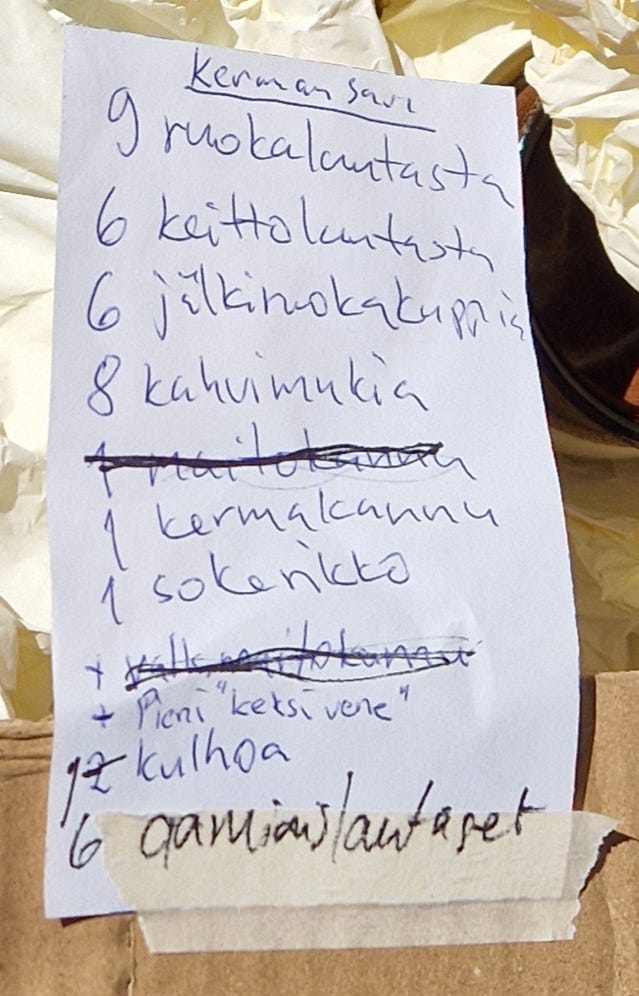 Kerman savi
9 ruokalautasta
6 keittolautasta
6 jälkiruokakuppia
8 kahvimukia
1 maitokannu
1 kermakannu
1 sokerikko
+ maitokannu
+ Pieni "keksivene"
12 kulhoa
6 aamiaislautaset